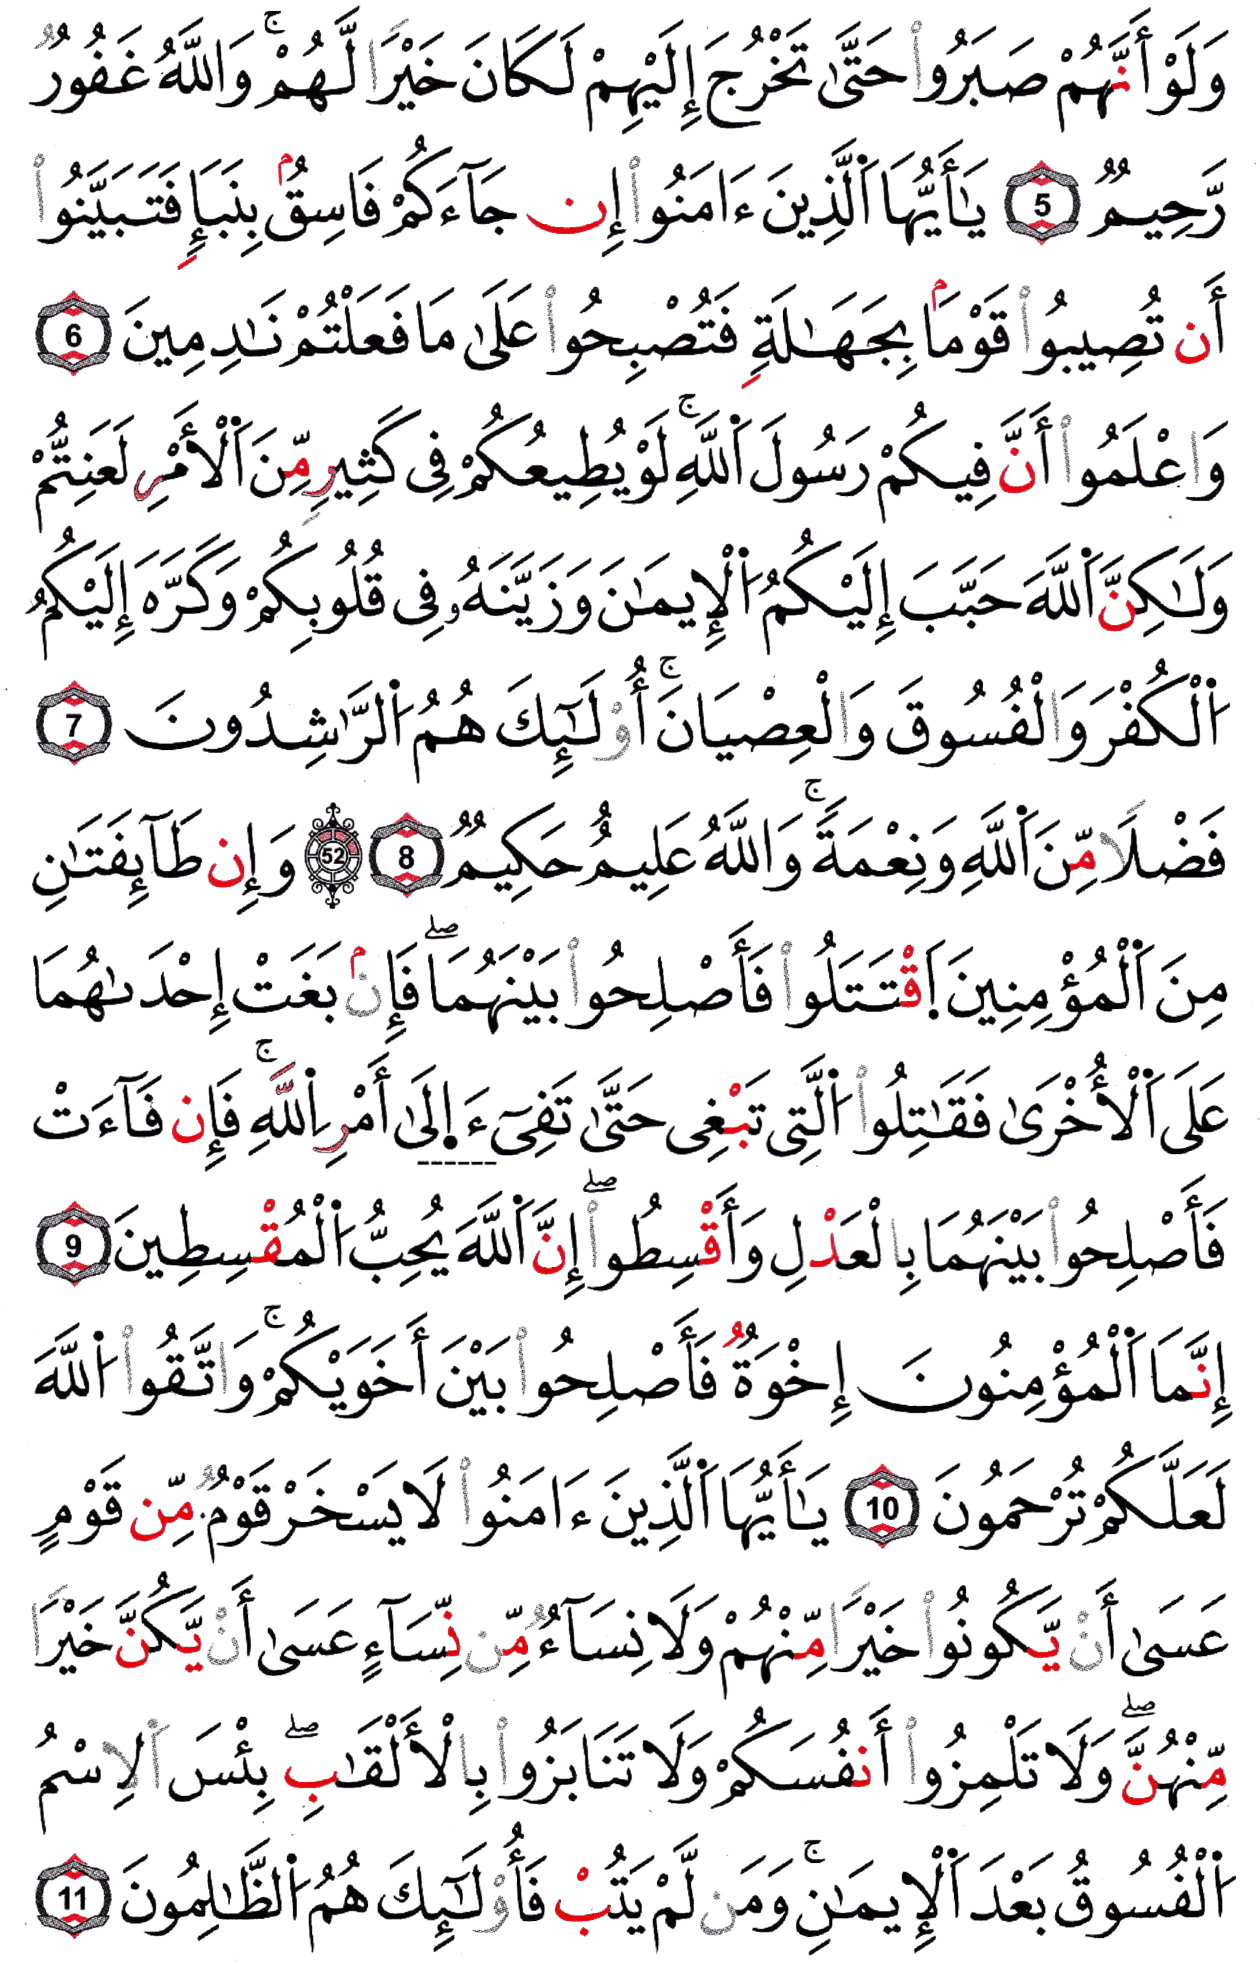 وَلَوْ أَنَّهُمْ صَبَرُوا۟ حَتَّىٰ تَخْرُجَ إِلَيْهِمْ لَكَانَ خَيْرًا لَّهُمْ ۚ وَاللَّهُ غَفُورٌ
رَّحِيمٌ 5 يَـٰٓأَيُّهَا ٱلَّذِينَ ءَامَنُوٓا۟ إِن جَآءَكُمْ فَاسِقٌۢ بِنَبَإٍ فَتَبَيَّنُوٓا۟
أَن تُصِيبُوا۟ قَوْمًۢا بِجَهَـٰلَةٍ فَتُصْبِحُوا۟ عَلَىٰ مَا فَعَلْتُمْ نَـٰدِمِينَ 6
وَاعْلَمُوٓا۟ أَنَّ فِيكُمْ رَسُولَ ٱللَّهِ ۚ لَوْ يُطِيعُكُمْ فِى كَثِيرٍ مِّنَ ٱلْأَمْرِ لَعَنِتُّمْ
وَلَـٰكِنَّ ٱللَّهَ حَبَّبَ إِلَيْكُمُ ٱلْإِيمَـٰنَ وَزَيَّنَهُۥ فِى قُلُوبِكُمْ وَكَرَّهَ إِلَيْكُمُ
ٱلْكُفْرَ وَالْفُسُوقَ وَالْعِصْيَانَ ۚ أُو۟لَـٰٓئِكَ هُمُ ٱلرَّٰشِدُونَ 7
فَضْلًا مِّنَ ٱللَّهِ وَنِعْمَةً ۚ وَاللَّهُ عَلِيمٌ حَكِيمٌ 8 52 وَإِن طَآئِفَتَـٰنِ
مِنَ ٱلْمُؤْمِنِينَ ٱقْتَتَلُوا۟ فَأَصْلِحُوا۟ بَيْنَهُمَا ۖ فَإِنۢ بَغَتْ إِحْدَىٰهُمَا
عَلَى ٱلْأُخْرَىٰ فَقَـٰتِلُوا۟ ٱلَّتِى تَبْغِى حَتَّىٰ تَفِىٓءَ إِلَىٰٓ أَمْرِ ٱللَّهِ ۚ فَإِن فَآءَتْ
فَأَصْلِحُوا۟ بَيْنَهُمَا بِالْعَدْلِ وَأَقْسِطُوٓا۟ ۖ إِنَّ ٱللَّهَ يُحِبُّ ٱلْمُقْسِطِينَ 9
إِنَّمَا ٱلْمُؤْمِنُونَ إِخْوَةٌ فَأَصْلِحُوا۟ بَيْنَ أَخَوَيْكُمْ ۚ وَاتَّقُوا۟ ٱللَّهَ
لَعَلَّكُمْ تُرْحَمُونَ 10 يَـٰٓأَيُّهَا ٱلَّذِينَ ءَامَنُوا۟ لَا يَسْخَرْ قَوْمٌ مِّن قَوْمٍ
عَسَىٰٓ أَنْ يَّكُونُوا۟ خَيْرًا مِّنْهُمْ وَلَا نِسَآءٌ مِّن نِّسَآءٍ عَسَىٰٓ أَنْ يَّكُنَّ خَيْرًا
مِّنْهُنَّ ۖ وَلَا تَلْمِزُوٓا۟ أَنفُسَكُمْ وَلَا تَنَابَزُوا۟ بِالْأَلْقَـٰبِ ۖ بِئْسَ ٱلِاسْمُ
ٱلْفُسُوقُ بَعْدَ ٱلْإِيمَـٰنِ ۚ وَمَن لَّمْ يَتُبْ فَأُو۟لَـٰٓئِكَ هُمُ ٱلظَّـٰلِمُونَ 11